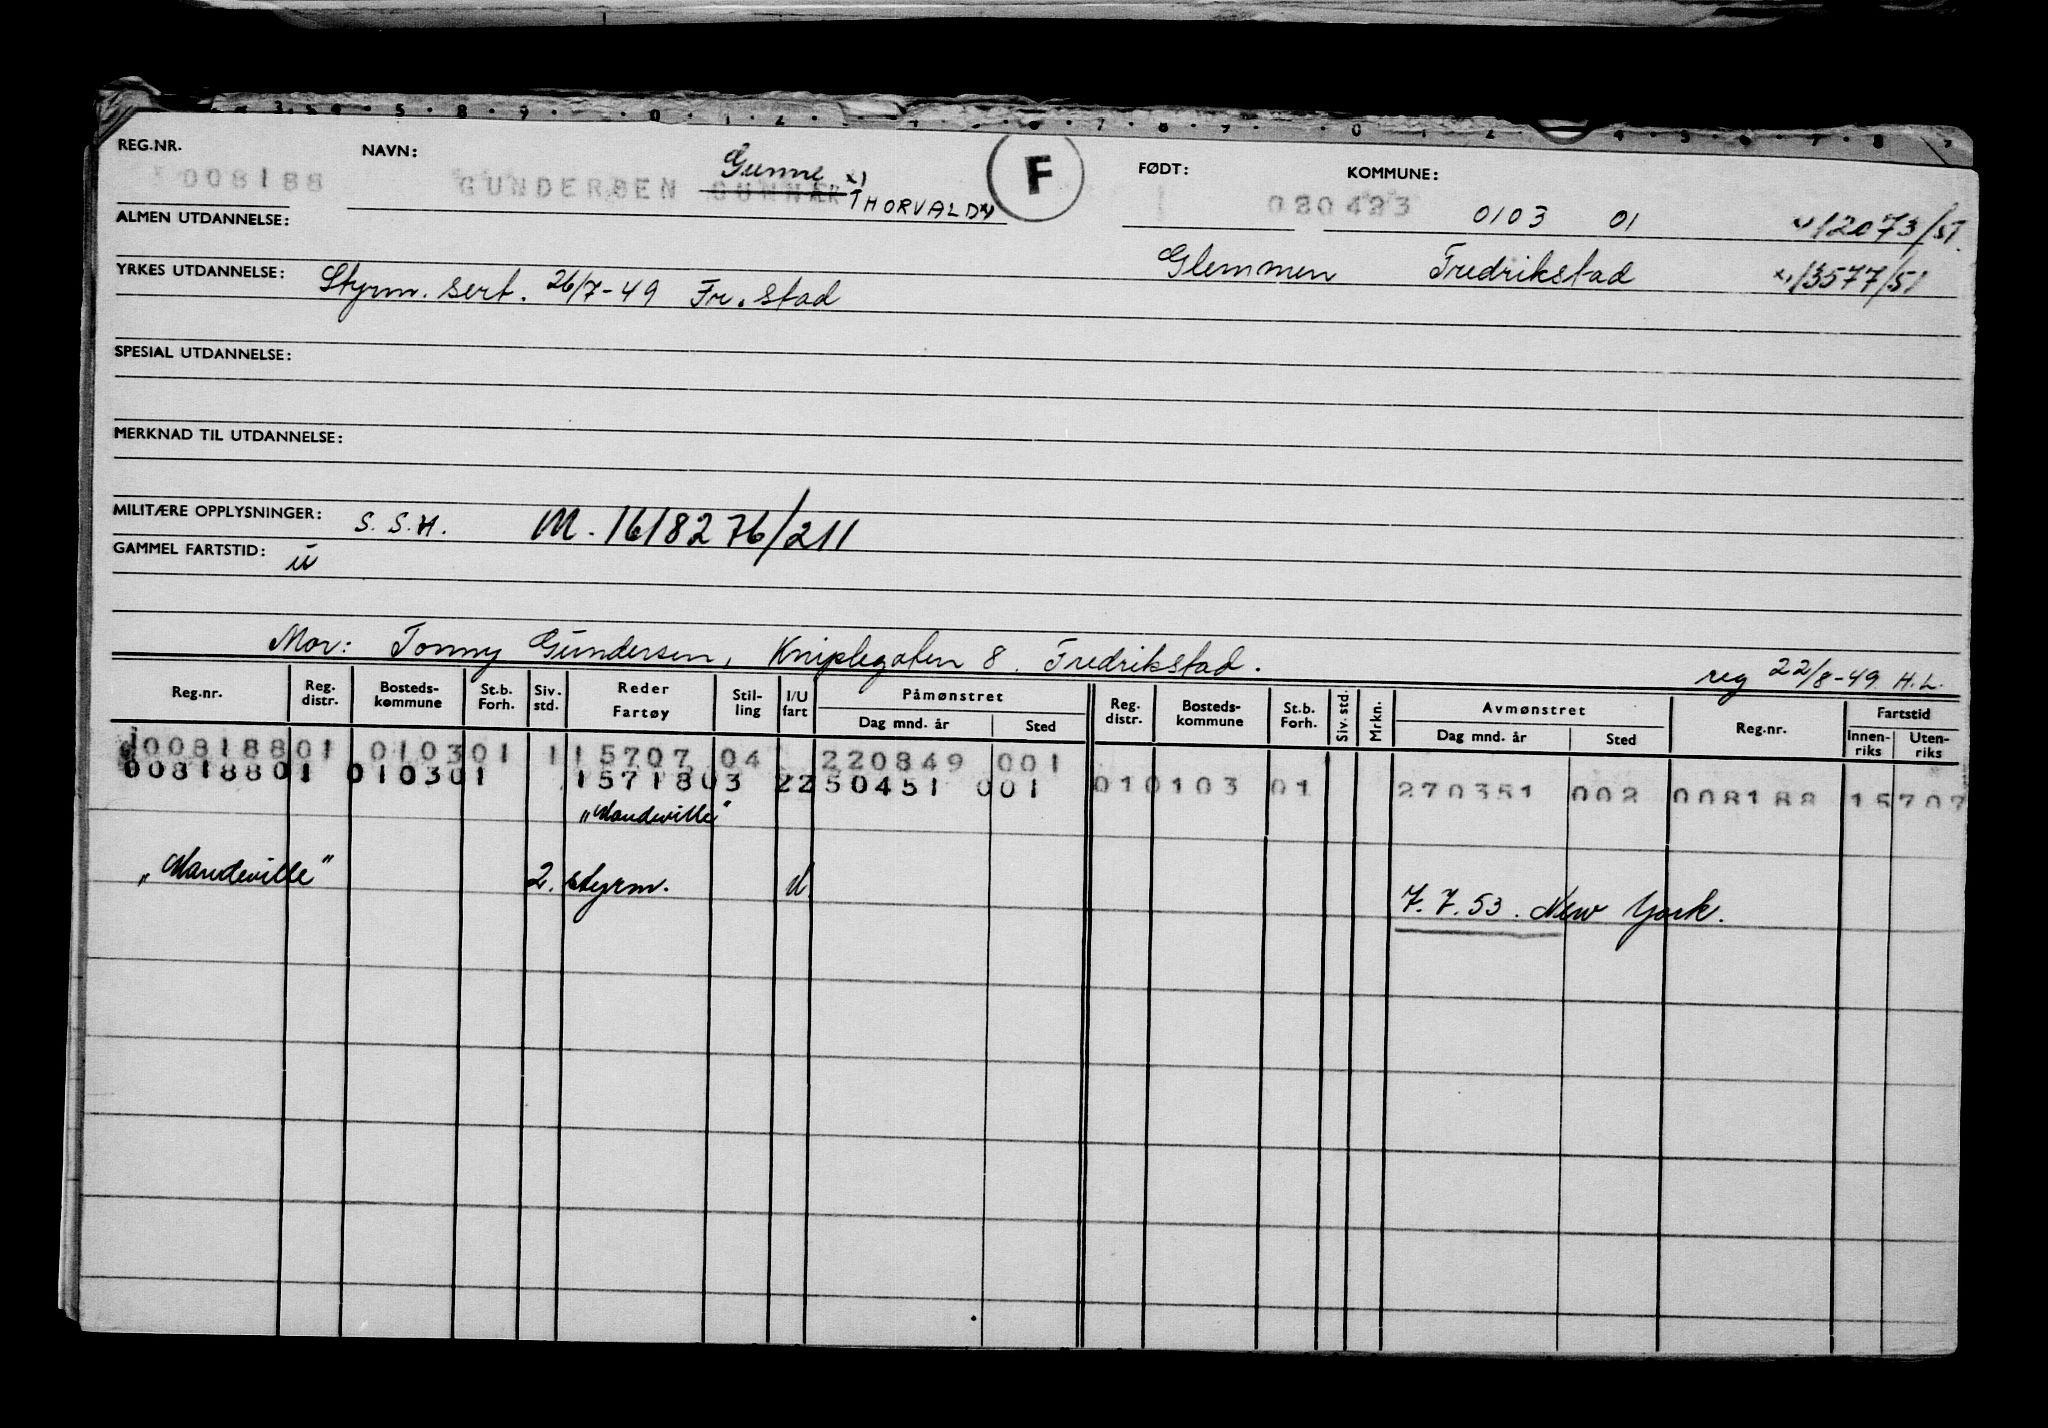 REG.NR. NAVN: FØDT: KOMMUNE:
008188 GUNDERSEN GUNNAR Gunne x) THORVALD x) F 080423 0103 01 12073/51.
ALMEN UTDANNELSE: Glemmen Fredrikstad x) 13577/51
YRKES UTDANNELSE: Styrm. sert. 26/7-49 Fr.stad
SPESIAL UTDANNELSE:
MERKNAD TIL UTDANNELSE:
MILITÆRE OPPLYSNINGER: S.S.H. M.1618276/211
GAMMEL FARTSTID: u
Mor: Tonny Gundersen, Kniplegaten 8. Fredrikstad.
reg 22/8-49 H.L.
Reg.nr. Reg. distr. Bosteds-kommune St.b. Forh. Siv. std. Reder Fartøy Stil-ling I/U fart Påmønstret Dag mnd. år Sted Reg. distr. Bosteds-kommune St.b. Forh. Siv. std. Mrkn. Avmønstret Dag mnd. år Sted Reg.nr. Fartstid Innen-riks Uten-riks
008188 01 0103 01 1 15707 04 220849 001
008188 01 0103 01 15718 03 2 250451 001 01 0103 01 270351 002 008188 15707
„Mandeville"
„Mandeville" 2. styrm. u 7.7.53. New York.